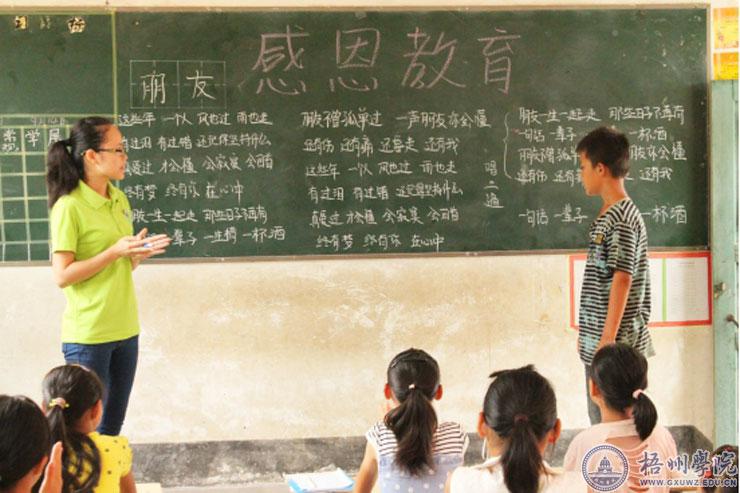 感恩教育
朋友
这些年 一个人 风也过 雨也走
有过泪 有过错 还记得坚持什么
真爱过 才会懂 会寂寞 会回首
终有梦 终有你 在心中
朋友一生一起走 那些日子不再有
一句话 一辈子 一生情 一杯酒
朋友不曾孤单过 一声朋友你会懂
还有伤 还有痛 还要走 还有我
这些年 一个人 风也过 雨也走
有过泪 有过错 还记得坚持什么
真爱过 才会懂 会寂寞 会回首
终有梦 终有你 在心中
唱二遍
朋友一生一起走 那些日子不再有
一句话 一辈子 一杯酒
朋友不曾孤单 朋友你会懂
还有伤 还有 还有我
一句话 一辈子 一杯酒
常 学 属
梧州學院
WWW.GXUWZ.EDU.CN